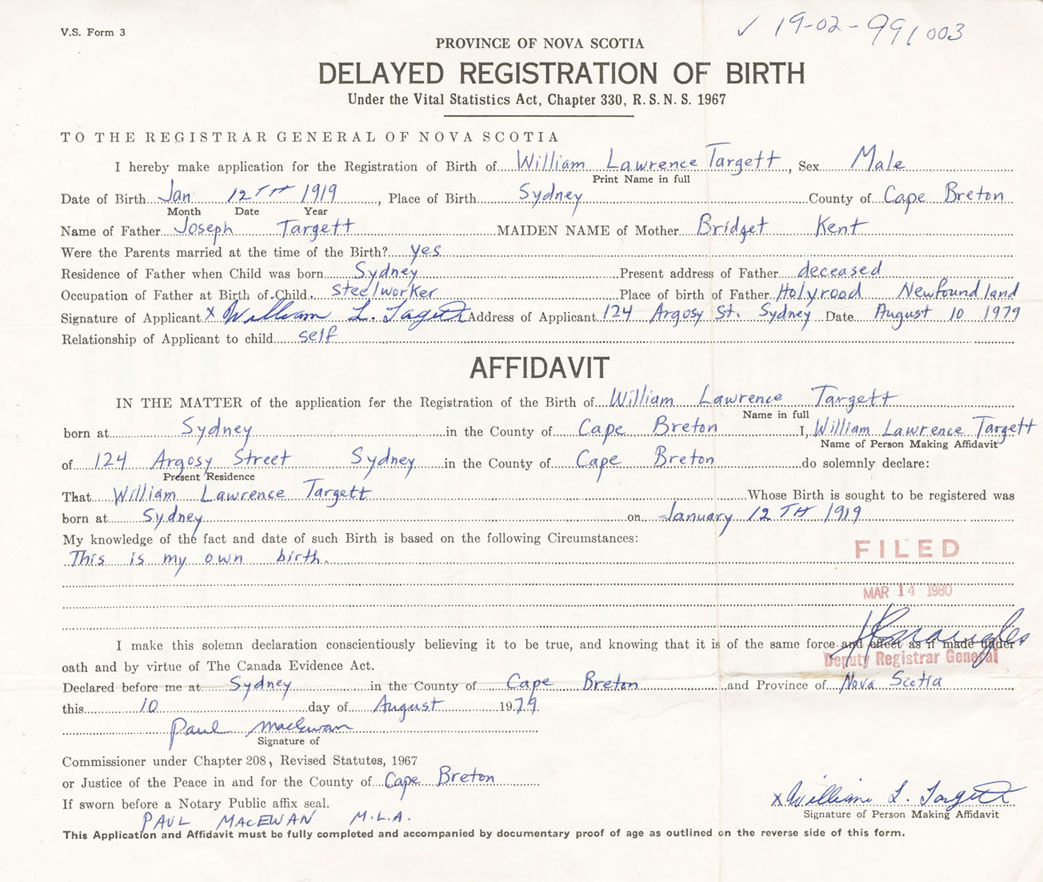 V.S. Form 3
✓ 19-02-991003
PROVINCE OF NOVA SCOTIA
DELAYED REGISTRATION OF BIRTH
Under the Vital Statistics Act, Chapter 330, R.S.N.S. 1967
TO THE REGISTRAR GENERAL OF NOVA SCOTIA
I hereby make application for the Registration of Birth of William Lawrence Targett, Sex Male
Print Name in full
Date of Birth Jan 12TH 1919, Place of Birth Sydney County of Cape Breton
Month Date Year
Name of Father Joseph Targett MAIDEN NAME of Mother Bridget Kent
Were the Parents married at the time of the Birth? yes
Residence of Father when Child was born Sydney Present address of Father deceased
Occupation of Father at Birth of Child. Steelworker Place of birth of Father Holyrood Newfoundland
Signature of Applicant x William L. Targett Address of Applicant 124 Argosy St. Sydney Date August 10 1979
Relationship of Applicant to child self
AFFIDAVIT
IN THE MATTER of the application for the Registration of the Birth of William Lawrence Targett
Name in full
born at Sydney in the County of Cape Breton I, William Lawrence Targett
Name of Person Making Affidavit
of 124 Argosy Street Sydney in the County of Cape Breton do solemnly declare:
Present Residence
That William Lawrence Targett Whose Birth is sought to be registered was
born at Sydney on January 12TH 1919
My knowledge of the fact and date of such Birth is based on the following Circumstances:
This is my own birth.
FILED
MAR 14 1980
I make this solemn declaration conscientiously believing it to be true, and knowing that it is of the same force and effect as if made under
Deputy Registrar General
oath and by virtue of The Canada Evidence Act.
Declared before me at Sydney in the County of Cape Breton and Province of Nova Scotia
this 10 day of August 1979
Paul MacEwan
Signature of
Commissioner under Chapter 208, Revised Statutes, 1967
or Justice of the Peace in and for the County of Cape Breton
If sworn before a Notary Public affix seal.
PAUL MACEWAN M.L.A.
x William L. Targett
Signature of Person Making Affidavit
This Application and Affidavit must be fully completed and accompanied by documentary proof of age as outlined on the reverse side of this form.